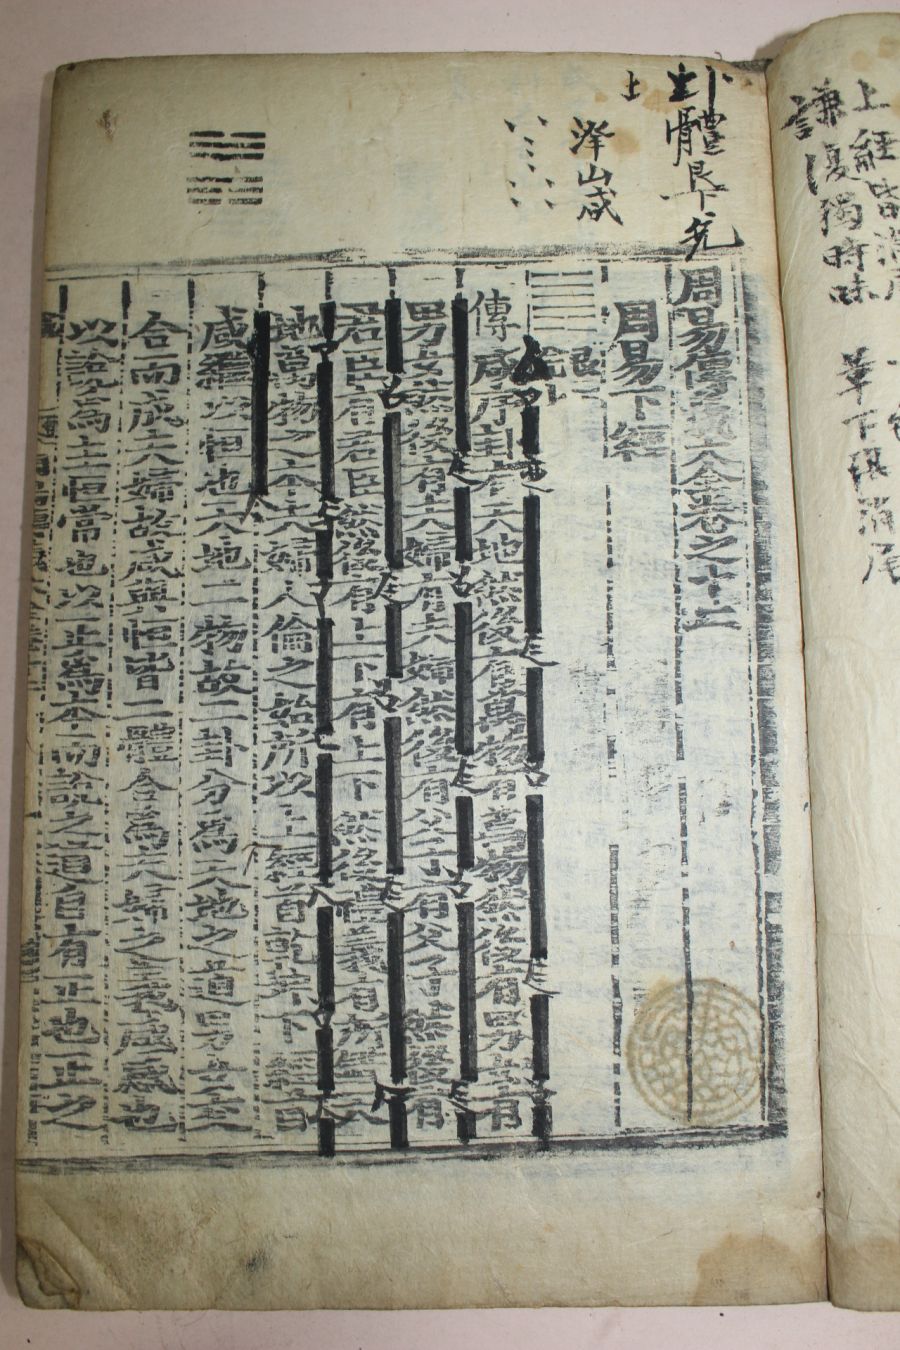 上經皆
謙復獨時味
革下
卦體艮下兌
上
澤山咸
周易傳義大全卷之十二
周易下經
傳咸序卦有天地然後有萬物有萬物然後有男女有
男女然後有夫婦有夫婦然後有父子有父子然後有
君臣有君臣然後有上下有上下然後禮義有所錯天
地萬物之本夫婦人倫之始所以上經首乾坤下經首
咸繼以恒也天地二物故二卦分爲天地之道男女交
合而成夫婦故咸與恒皆二體合爲夫婦之義咸感也
以說爲主恒常也以正爲本而說之道自有正也正之